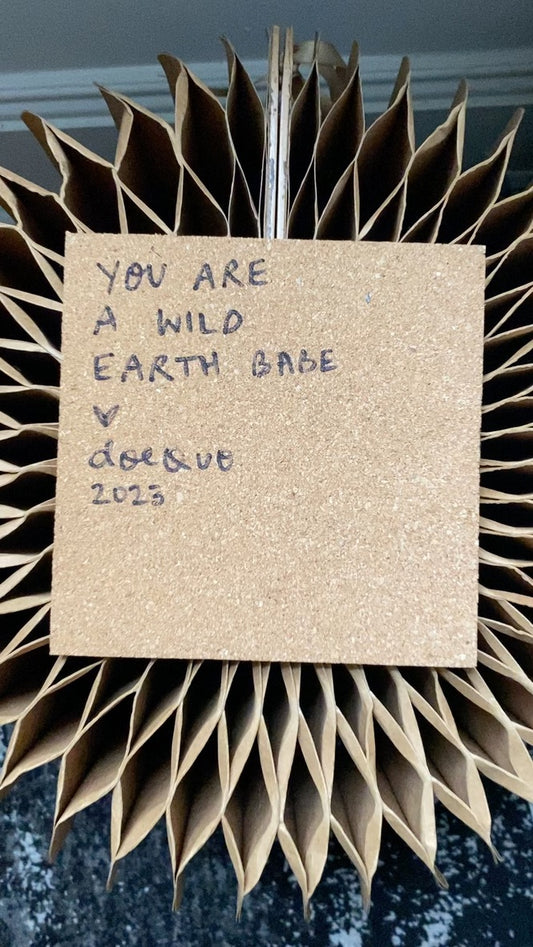 YOU ARE
A WILD
EARTH BABE
♥
2023